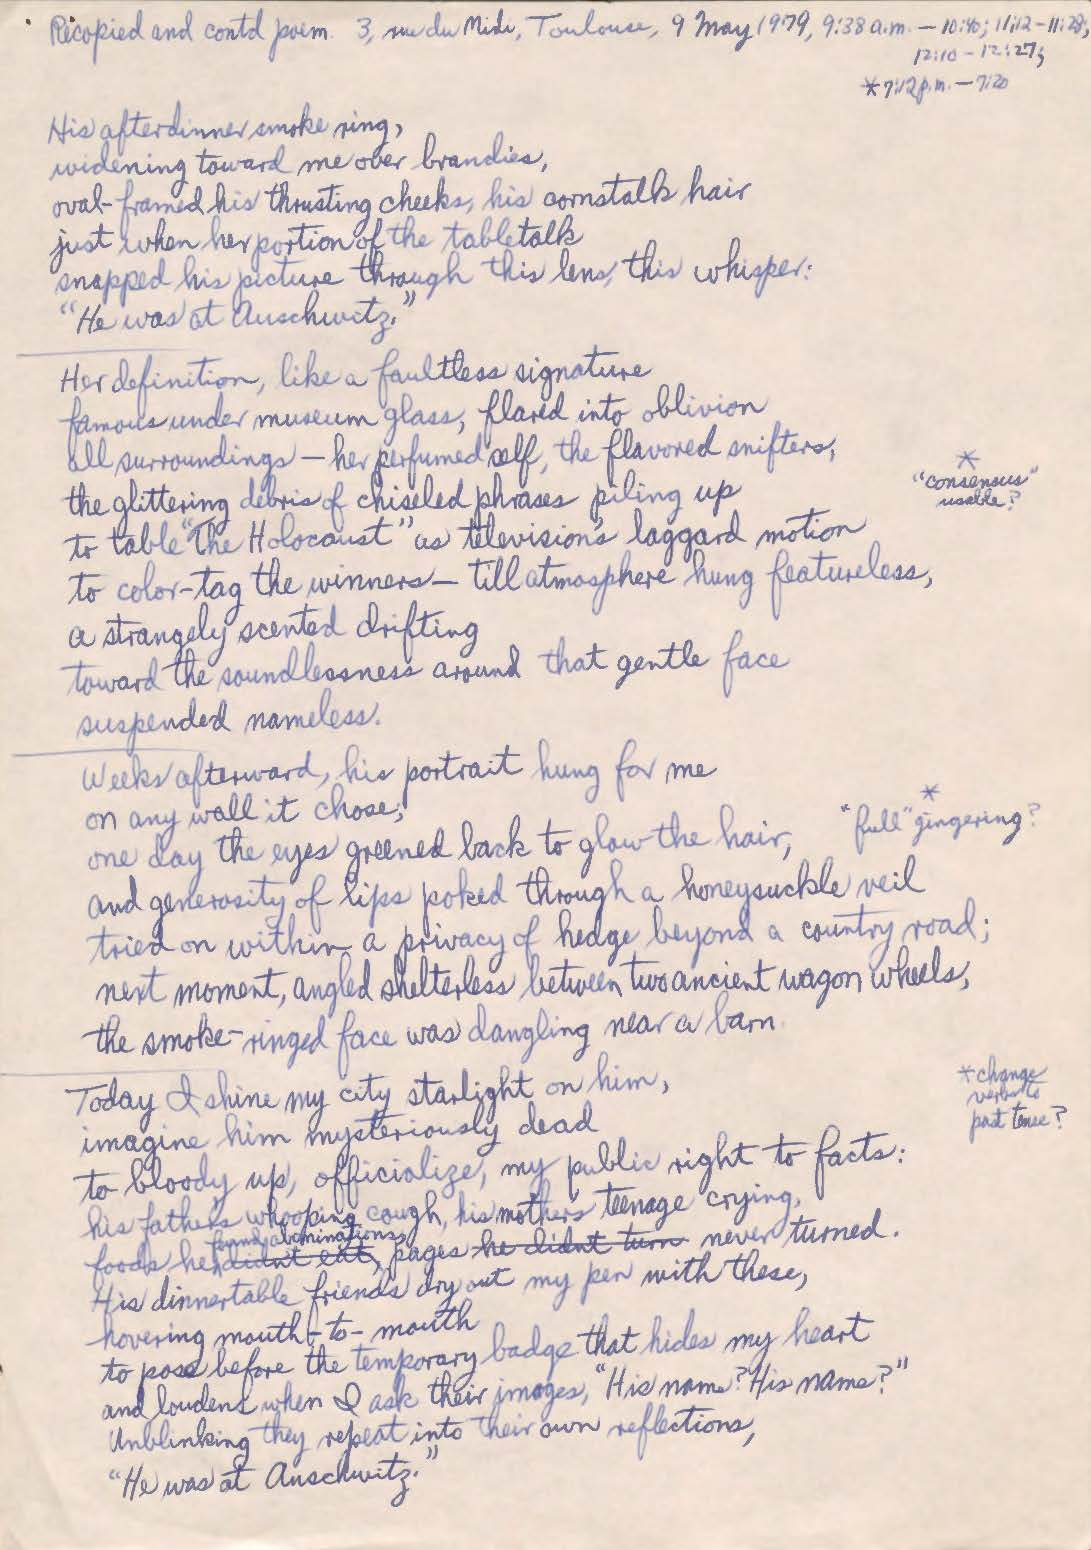 Recopied and contd poem. 3, rue du Midi, Toulouse, 9 May 1979, 9:38 a.m. – 10:40; 11:12 – 11:28;
12:10 – 12:27;
*7:12 p.m. – 7:20
His afterdinner smoke ring,
widening toward me over brandies,
oval-framed his thrusting cheeks, his cornstalk hair
just when her portion of the tabletalk
snapped his picture through this lens, this whisper:
"He was at Auschwitz."
Her definition, like a faultless signature
famous under museum glass, flared into oblivion
all surroundings – her perfumed self, the flavored snifters,
the glittering debris of chiseled phrases piling up
*
"consensus"
usable?
to table "The Holocaust" as television's laggard motion
to color-tag the winners – till atmosphere hung featureless,
a strangely scented drifting
toward the soundlessness around that gentle face
suspended nameless.
Weeks afterward, his portrait hung for me
on any wall it chose;
one day the eyes greened back to glow the hair,
*
"full" gingering?
and generosity of lips poked through a honeysuckle veil
tried on within a privacy of hedge beyond a country road;
next moment, angled shelterless between two ancient wagon wheels,
the smoke-ringed face was dangling near a barn.
Today I shine my city starlight on him,
*change
verbs to
past tense?
imagine him mysteriously dead
to bloody up, officialize, my public right to facts:
his father's whooping cough, his mother's teenage crying,
foods he didn't eat, found abominations, pages he didn't turn never turned.
His dinnertable friends dry out my pen with these,
hovering mouth-to-mouth
to pose before the temporary badge that hides my heart
and loudens when I ask their images, "His name? His name?"
Unblinking they repeat into their own reflections,
"He was at Auschwitz."